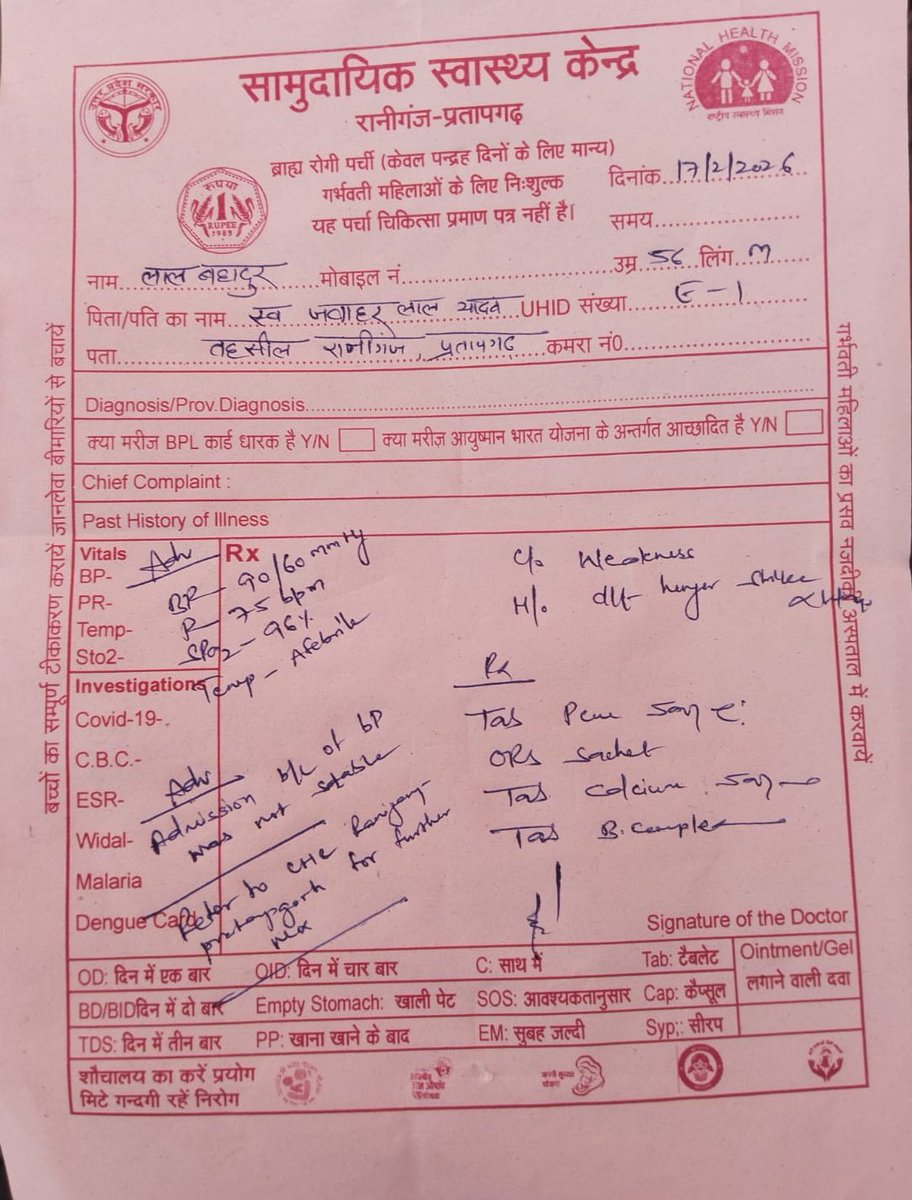 सामुदायिक स्वास्थ्य केन्द्र
रानीगंज-प्रतापगढ़
NATIONAL HEALTH MISSION
राष्ट्रीय स्वास्थ्य मिशन
उत्तर प्रदेश सरकार
रूपया
1
RUPEE
1985
ब्राह्य रोगी पर्ची (केवल पन्द्रह दिनों के लिए मान्य)
गर्भवती महिलाओं के लिए निःशुल्क
यह पर्चा चिकित्सा प्रमाण पत्र नहीं है।
दिनांक 17/2/2026
समय
नाम लाल बहादुर मोबाइल नं. उम्र 56 लिंग M
पिता/पति का नाम स्व जवाहर लाल यादव UHID संख्या E-1
पता तहसील रानीगंज, प्रतापगढ़ कमरा नं0
Diagnosis/Prov.Diagnosis
क्या मरीज BPL कार्ड धारक है Y/N क्या मरीज आयुष्मान भारत योजना के अन्तर्गत आच्छादित है Y/N
Chief Complaint :
Past History of Illness
Vitals
BP-
PR-
Temp-
Sto2-
Adv
Rx
BP - 90/60 mmHg
P - 75 bpm
SPO2 - 96%
Temp - Afebrile
c/o Weakness
H/o hunger
Investigations
Covid-19-
C.B.C.-
ESR-
Widal-
Malaria
Dengue Card
Adv
Admission b/c of bp
was not stable
Refer to CHC Raniganj
pratapgarh for further
Rx
Tab
ORS sachet
Tab Calcium
Tab B.complex
Signature of the Doctor
OD: दिन में एक बार QID: दिन में चार बार C: साथ में Tab: टैबलेट Ointment/Gel
लगाने वाली दवा
BD/BIDदिन में दो बार Empty Stomach: खाली पेट SOS: आवश्यकतानुसार Cap: कैप्सूल
TDS: दिन में तीन बार PP: खाना खाने के बाद EM: सुबह जल्दी Syp;: सीरप
शौचालय का करें प्रयोग
मिटे गन्दगी रहें निरोग
बच्चों का सम्पूर्ण टीकाकरण करायें जानलेवा बीमारियों से बचायें
गर्भवती महिलाओं का प्रसव नजदीकी अस्पताल में करवायें